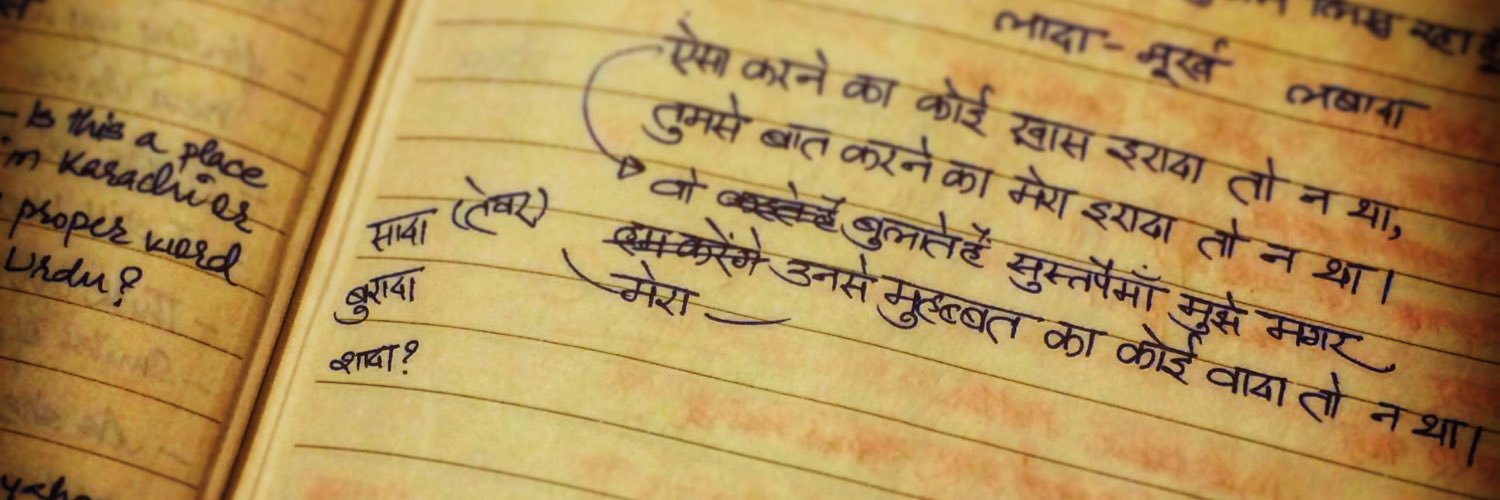 - Is this a place
in Karachi or
proper word
Urdu?
लिख रहा
लादा - मूर्ख लबादा
ऐसा करने का कोई ख़ास इरादा तो न था,
तुमसे बात करने का मेरा इरादा तो न था।
वो बुलाते हैं सुस्तपैमाँ मुझे मगर
हम करेंगे उनसे मुहब्बत का कोई वादा तो न था।
मेरा
सादा (तेवर)
बुरादा
शादा?